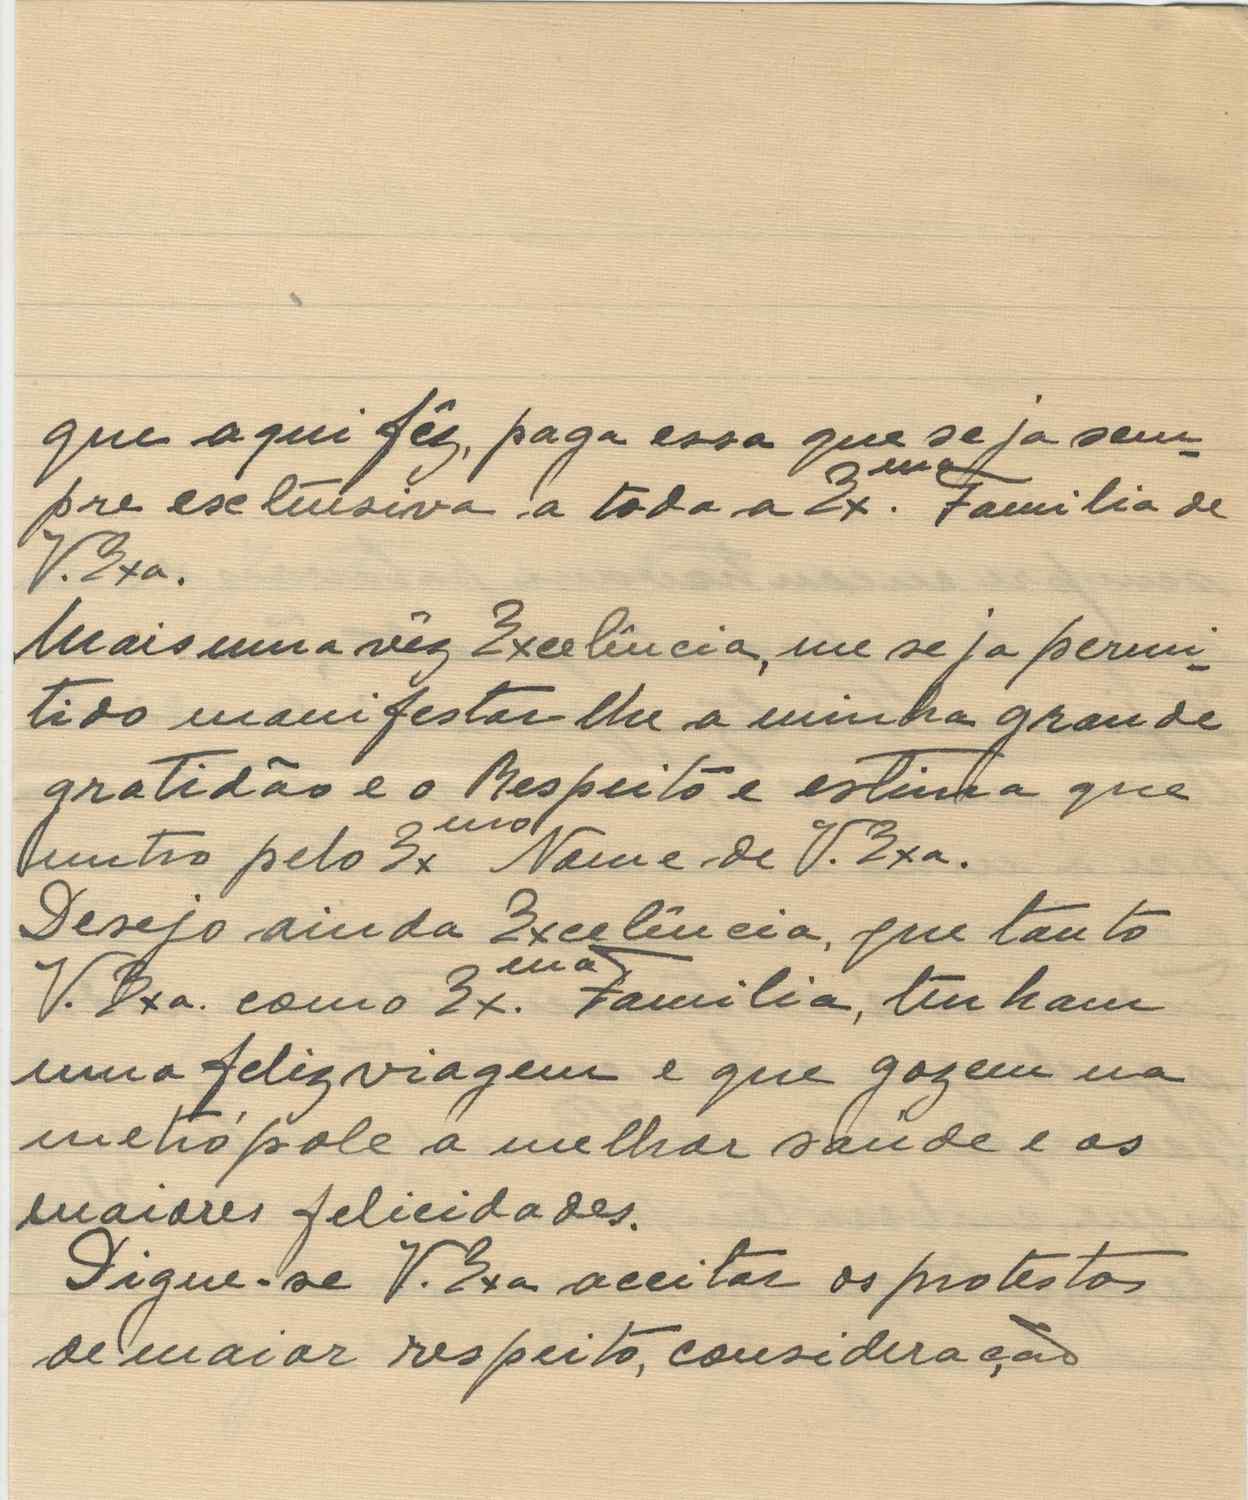 que aqui fêz, paga essa que seja sem-
pre esclusiva a toda a Ex.ma Familia de
V. Exa.
Mais uma vêz Excelência, me seja permi-
tido manifestar lhe a minha grande
gratidão e o Respeito e estima que
nutro pelo Exmo Nome de V. Exa.
Desejo ainda Excelência, que tanto
V. Exa. como Ex.ma Familia, tenham
uma feliz viagem e que gozem na
metrópole a melhor saúde e as
maiores felicidades.
Digne-se V. Exa aceitar os protestos
de maior respeito, consideração